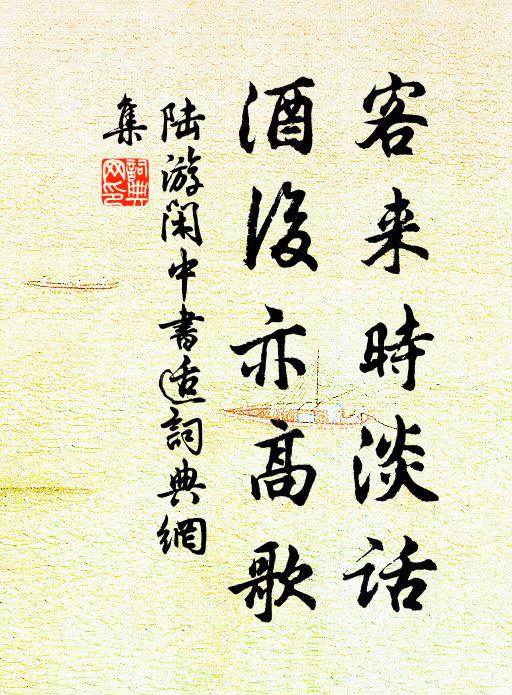 客来時淡話
酒後亦高歌
陆游閑中書适詞典網
集
詞典网印